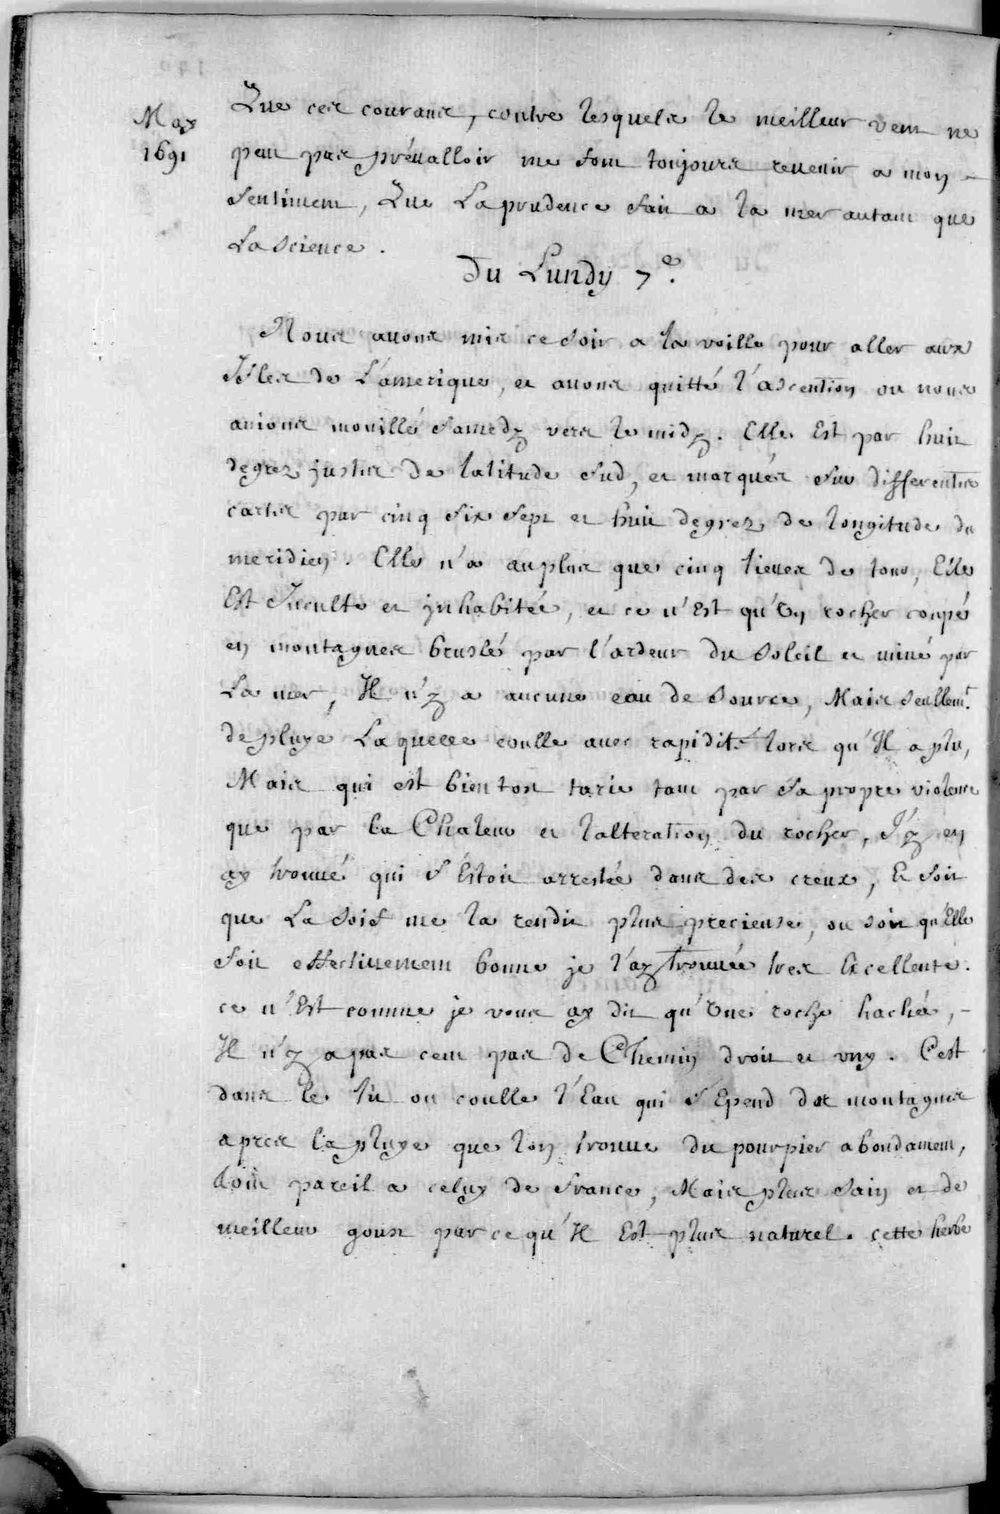 May
1691
Que ces courans, contre lesquels le meilleur vent ne
peut pas prévalloir me font toujours revenir a mon
sentiment, Que La prudence fait a la mer autant que
La science.
Du Lundy 7e.
Nous avons mis ce soir a la voille pour aller aux
Isles de L'amerique, et avons quitté l'ascention ou nous
avions mouillé samedy vers le midy. Elle Est par huit
degrez justes de latitude sud, et marquée sur differentes
cartes par cinq six sept et huit degrez de longitude du
meridien. Elle n'a au plus que cinq lieues de tour, Elle
Est Inculte et inhabitée, et ce n'Est qu'Un rocher coupé
en montagnes bruslé par l'ardeur du soleil et miné par
La mer, Il n'y a aucune eau de source, Mais seullemt.
de pluye Laquelle coulle avec rapidité lors qu'Il a plu,
Mais qui est bien tost tarie tant par sa propre violence
que par la Chaleur et lalteration du rocher, J'y en
ay trouvé qui s'Estoit arrestée dans des creux, Et soit
que La soif me la rendit plus precieuse, ou soit qu'Elle
soit effectivement bonne je l'ay trouvée tres Excellente.
ce n'Est comme je vous ay dit qu'Une roche hachée,
Il n'y a pas cent pas de Chemin droit et uny. C'est
dans le lit ou coulle l'Eau qui s'Epend des montagnes
apres la pluye que lon trouve du pourpier abondament,
tout pareil a celuy de france, Mais plus sain et de
meilleur goust parce qu'Il Est plus naturel. cette herbe